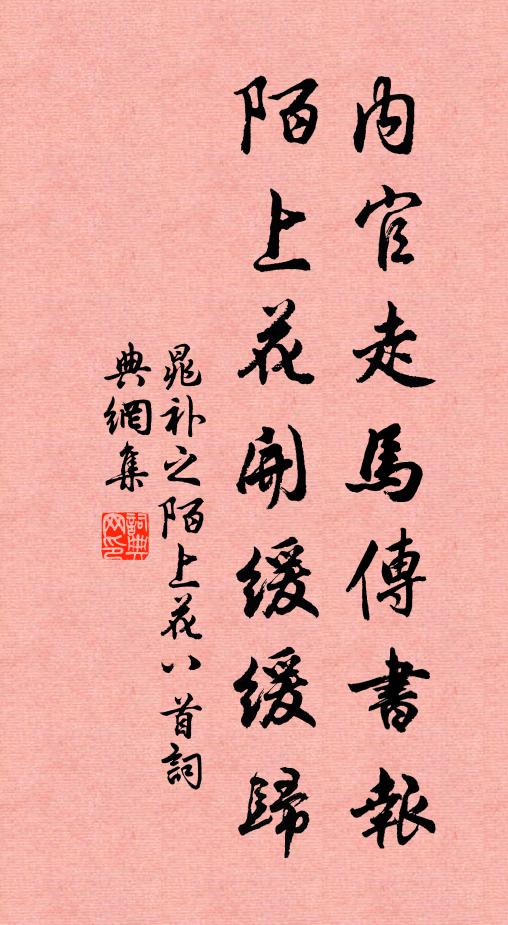 内官走馬傳書報
陌上花開緩緩歸
晁补之陌上花八首詞
典網集
詞典网印